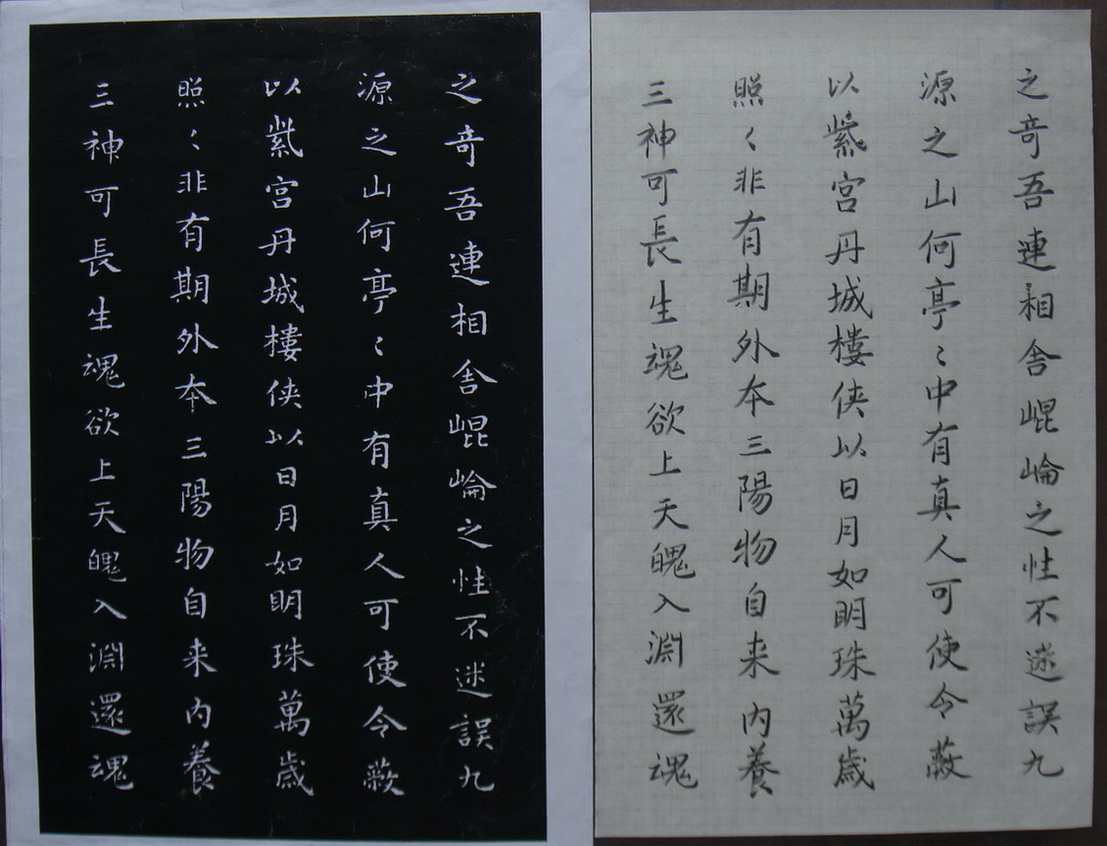 之奇吾連相舍崐崘之性不迷誤九
源之山何亭〻中有真人可使令蔽
以紫宮丹城樓侠以日月如明珠萬歳
照〻非有期外本三陽物自来内養
三神可長生魂欲上天魄入淵還魂
之奇吾連相舍崐崘之性不迷誤九
源之山何亭〻中有真人可使令蔽
以紫宮丹城樓侠以日月如明珠萬歳
照〻非有期外本三陽物自来内養
三神可長生魂欲上天魄入淵還魂